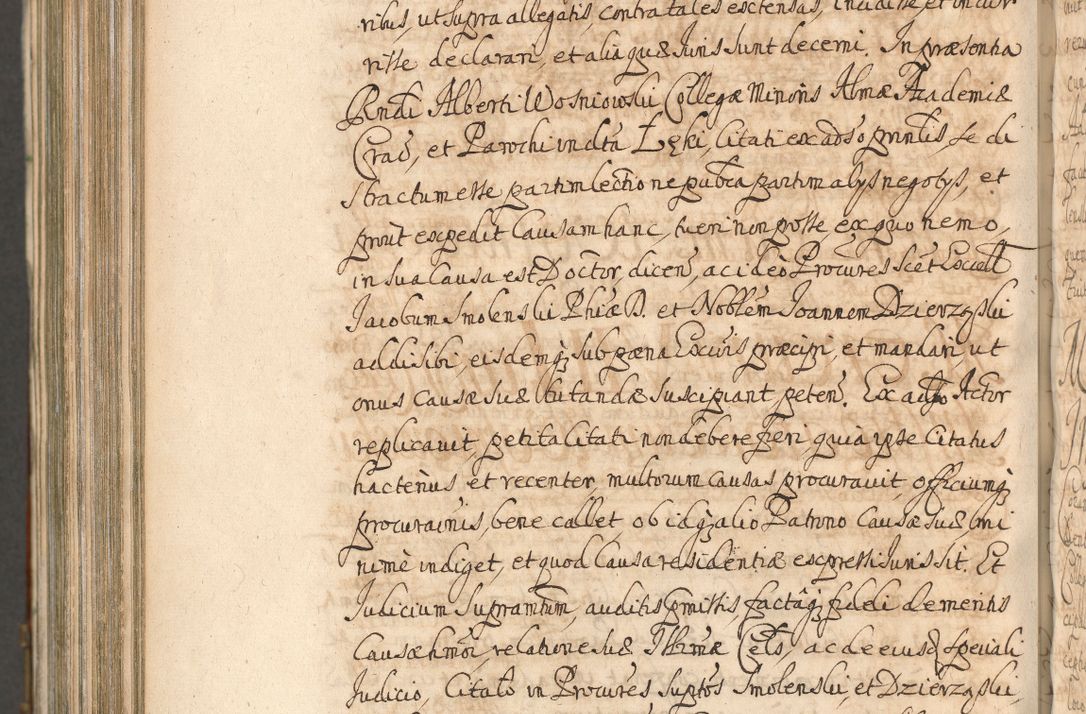 ribus, ut supra allegatis, contra tales extensas, incidisse, et incur
risse declarari, et alia quæ Iuris sunt decerni. In præsentia
Rndi Alberti Wosniowski Collegæ Minoris Almæ Academiæ
Crac̃, et Parochi in dcta Lęki, Citati ex adṽso prinlis, se di
stractum esse partim lectione pubca partim alys negotys, et
prout expedit Causam hanc, tueri non posse ex quo nemo,
in sua Causa est Doctor, dicen̄, ac ideo Procures Scet Excell
Iacobum Smolenski Phiæ D. et Noblem Ioannem Dzierzęski
addi sibi, eisdemq; sub pœna Excõis præcipi, et mandari, ut
onus Causæ suæ tutandæ suscipiant peten̄. Ex adṽso Actor
replicavit, petita Citati non debere fieri, quia ipse Citatus
hactenus et recenter, multorum causas procuravit, officiumq;
procuraĩnis, bene callet, ob idq; alio Patrono Causæ suæ, mi
nimè indiget, et quod Causa residentiæ expressi Iuris sit. Et
Iudicium Supra ntum, auditis pmissis, factâq; fidei de meritis
Causæ hmoi, relatione suæ Illrmæ Cels, ac de eiusd speciali
Iudicio, Citato in Procures Suptos Smolenski, et Dzierzęski,